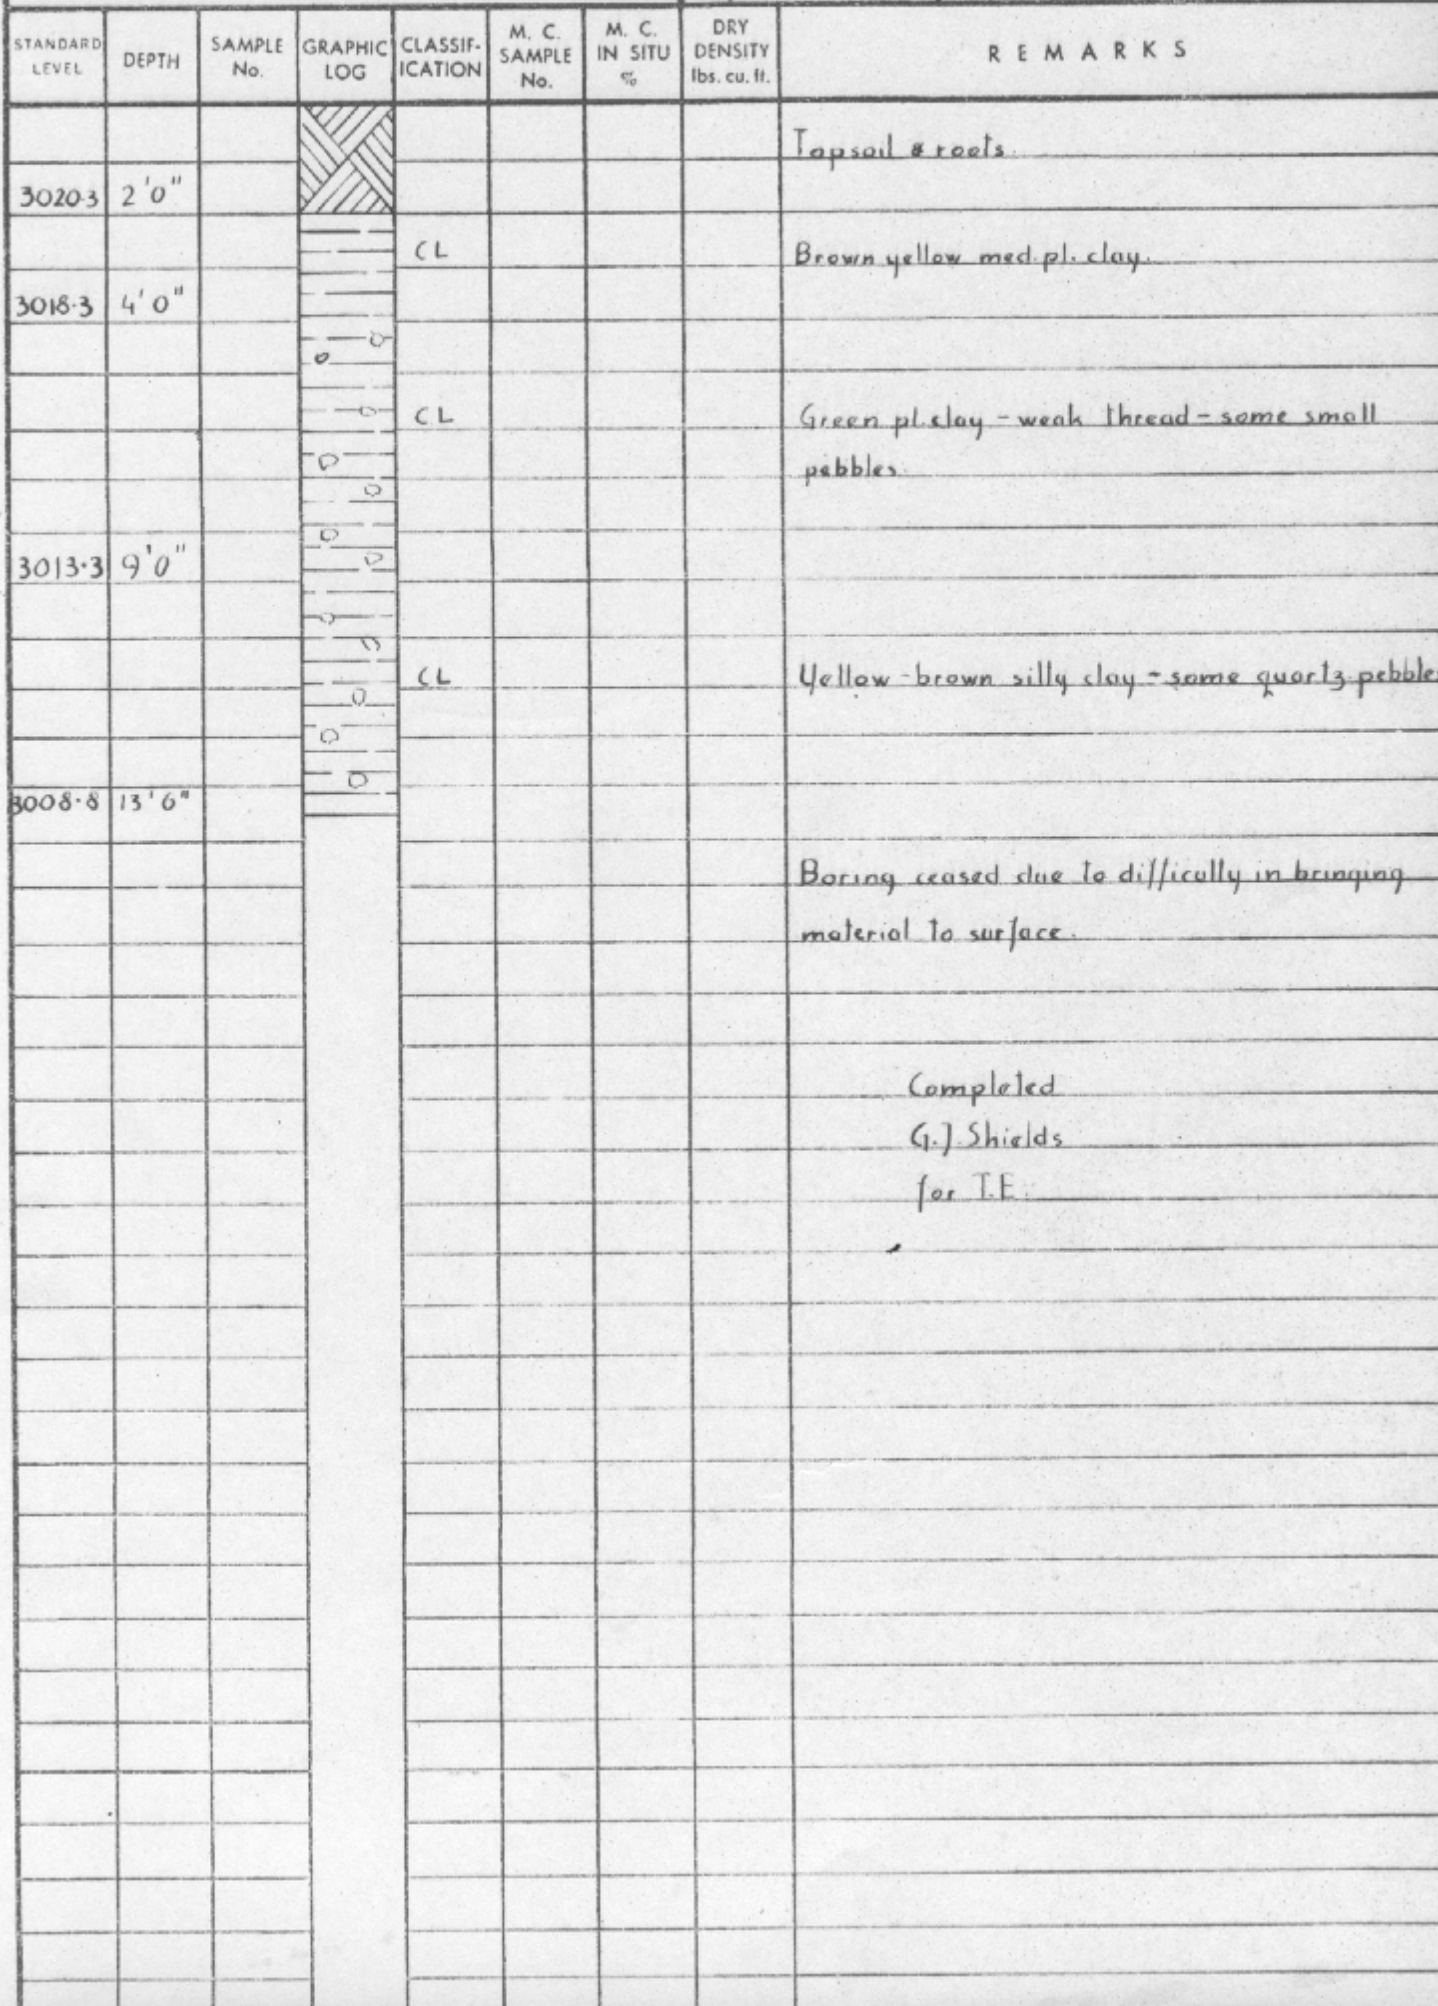 STANDARD LEVEL DEPTH SAMPLE No. GRAPHIC LOG CLASSIF- ICATION M. C. SAMPLE No. M. C. IN SITU % DRY DENSITY lbs. cu. ft. REMARKS
Topsoil & roots.
3020.3 2'0"
CL Brown yellow med. pl. clay.
3018.3 4'0"
CL Green pl. clay - weak thread - some small
pebbles.
3013.3 9'0"
CL Yellow-brown silty clay - some quartz pebble
3008.8 13'6"
Boring ceased due to difficulty in bringing
material to surface.
Completed
G.J. Shields
for T.E.